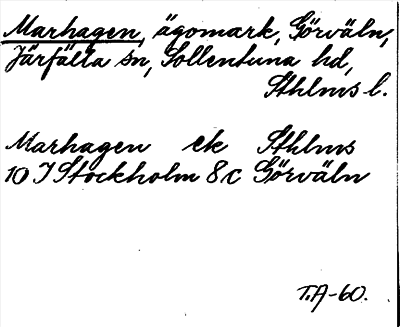 Marhagen, ägomark, Görväln,
Järfälla sn, Sollentuna hd,
Sthlms l.
Marhagen ek Sthlms
10 I Stockholm 8c Görväln
T.A-60.